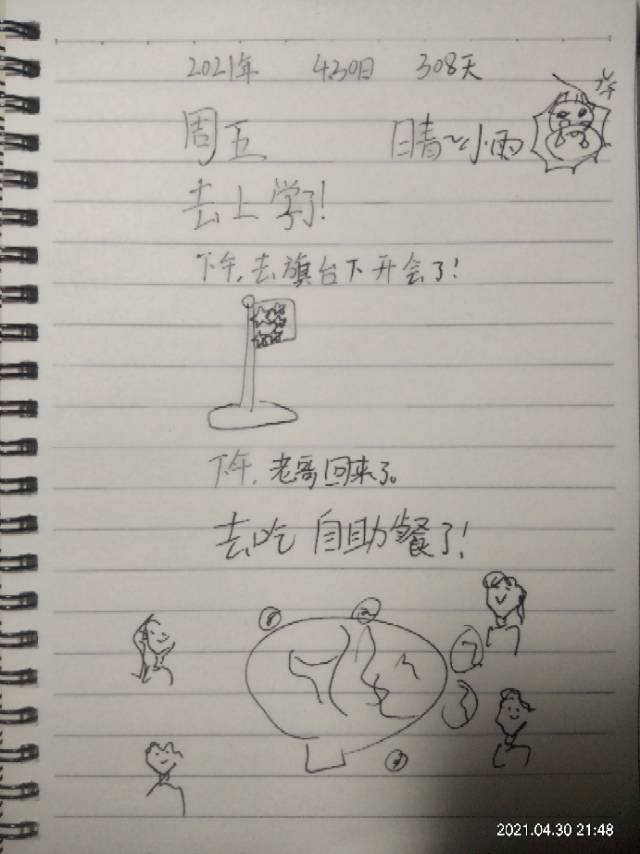 2021年 4月30日 308天
周五 晴~小雨
去上学了!
下午,去旗台下开会了!
下午,老哥回来了。
去吃自助餐了!
2021.04.30 21:48